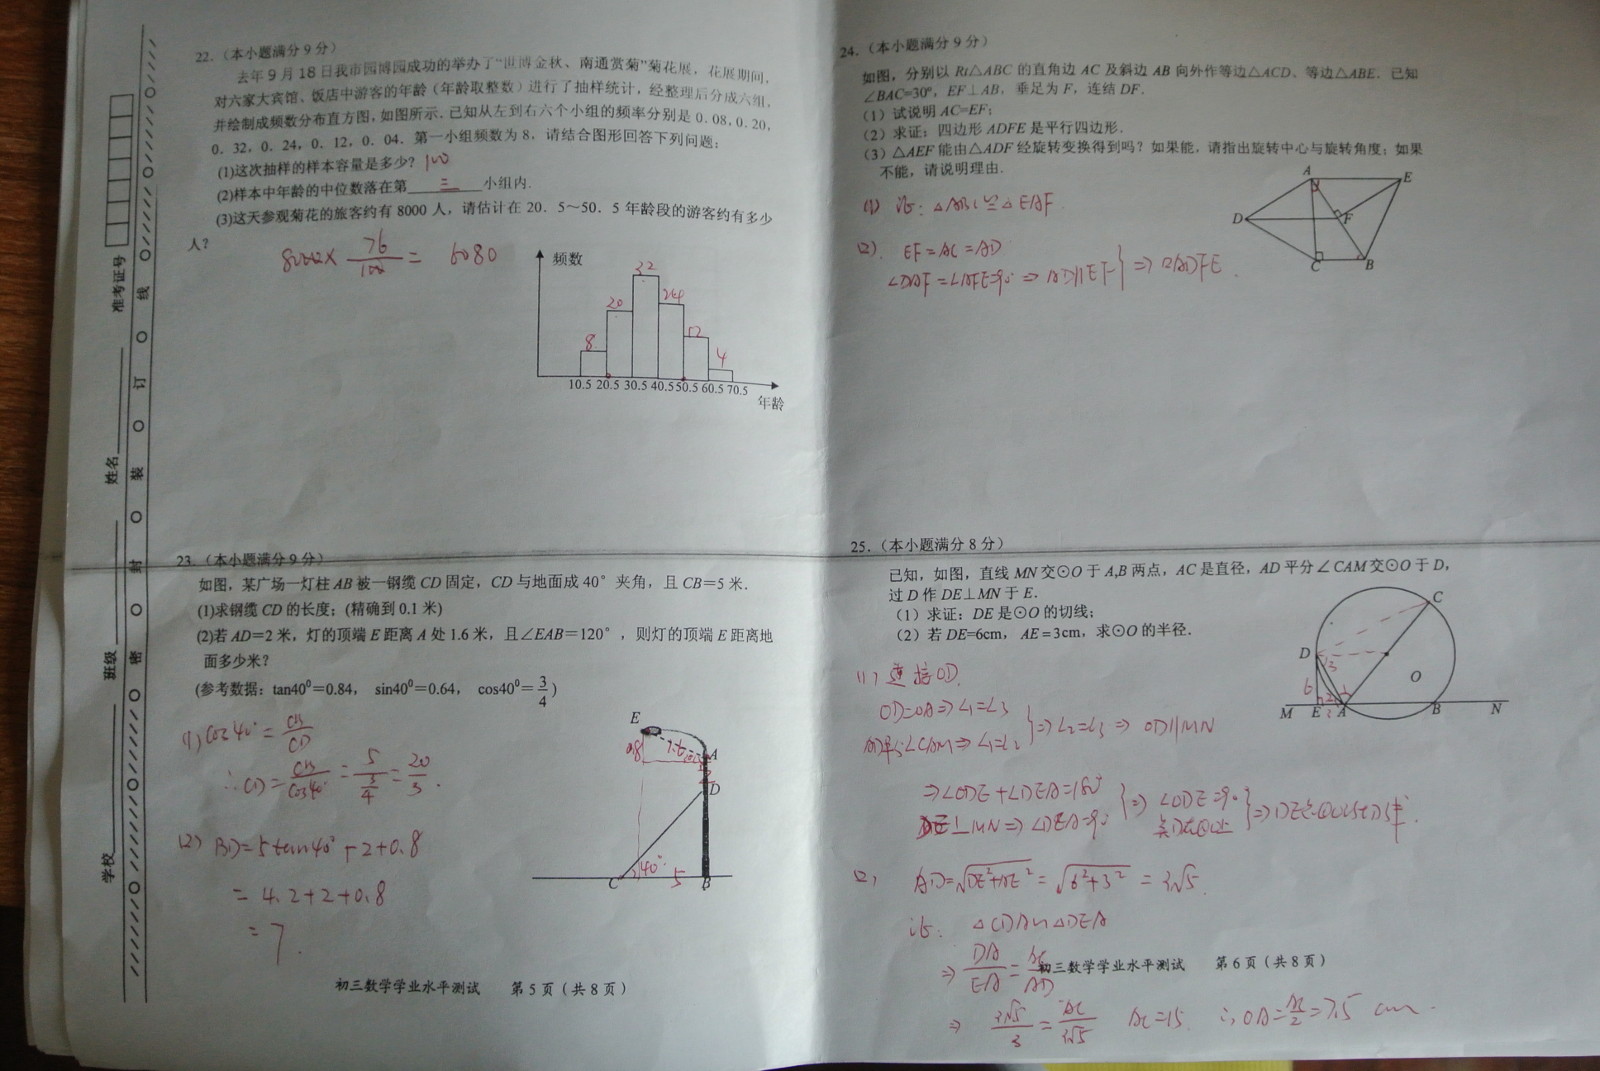 准考证号
姓名
班级
学校
密 封 装 订 线
22.（本小题满分9分）
去年9月18日我市园博园成功的举办了“世博金秋、南通赏菊”菊花展，花展期间，
对六家大宾馆、饭店中游客的年龄（年龄取整数）进行了抽样统计，经整理后分成六组，
并绘制成频数分布直方图，如图所示．已知从左到右六个小组的频率分别是0.08，0.20，
0．32，0．24，0．12，0．04．第一小组频数为8，请结合图形回答下列问题：
(1)这次抽样的样本容量是多少？100
(2)样本中年龄的中位数落在第 三 小组内.
(3)这天参观菊花的旅客约有8000人，请估计在20．5～50．5年龄段的游客约有多少
人？
8000×76/100=6080
频数
8 20 32 24 12 4
10.5 20.5 30.5 40.5 50.5 60.5 70.5
年龄
23.（本小题满分9分）
如图，某广场一灯柱AB被一钢缆CD固定，CD与地面成40°夹角，且CB=5米．
(1)求钢缆CD的长度；(精确到0.1米)
(2)若AD=2米，灯的顶端E距离A处1.6米，且∠EAB=120°，则灯的顶端E距离地
面多少米？
(参考数据：tan40⁰=0.84， sin40⁰=0.64， cos40⁰=3/4)
(1) cos40°=CB/CD
∴CD=CB/cos40°=5/(3/4)=20/3.
(2) BD=5tan40°+2+0.8
=4.2+2+0.8
=7.
E
0.8 1.6 A
2
D
C 40° 5 B
初三数学学业水平测试 第5页（共8页）
24.（本小题满分9分）
如图，分别以Rt△ABC的直角边AC及斜边AB向外作等边△ACD、等边△ABE．已知
∠BAC=30º，EF⊥AB，垂足为F，连结DF．
（1）试说明AC=EF；
（2）求证：四边形ADFE是平行四边形．
（3）△AEF能由△ADF经旋转变换得到吗？如果能，请指出旋转中心与旋转角度；如果
不能，请说明理由．
(1) 证：△ABC≌△EAF.
(2). EF=AC=AD
∠DAF=∠AFE=90⇒AD∥EF}⇒▱ADFE.
A E
D F
C B
25.（本小题满分8分）
已知，如图，直线MN交⊙O于A,B两点，AC是直径，AD平分∠CAM交⊙O于D，
过D作DE⊥MN于E．
（1）求证：DE是⊙O的切线；
（2）若DE=6cm，AE=3cm，求⊙O的半径．
(1) 连接OD.
OD=OA⇒∠1=∠3
AD平分∠CAM⇒∠1=∠2}⇒∠2=∠3⇒OD∥MN
⇒∠ODE+∠DEA=180°
DE⊥MN⇒∠DEA=90}⇒∠ODE=90
C
D 3
6 O
M E A B N
(2) AD=√DE²+AE²=√6²+3²=3√5.
证：△CDA∽△DEA
⇒DA/EA=AC/AD
初三数学学业水平测试 第6页（共8页）
⇒3√5/3=AC/3√5 AC=15. ∴OA=AC/2=7.5 cm.